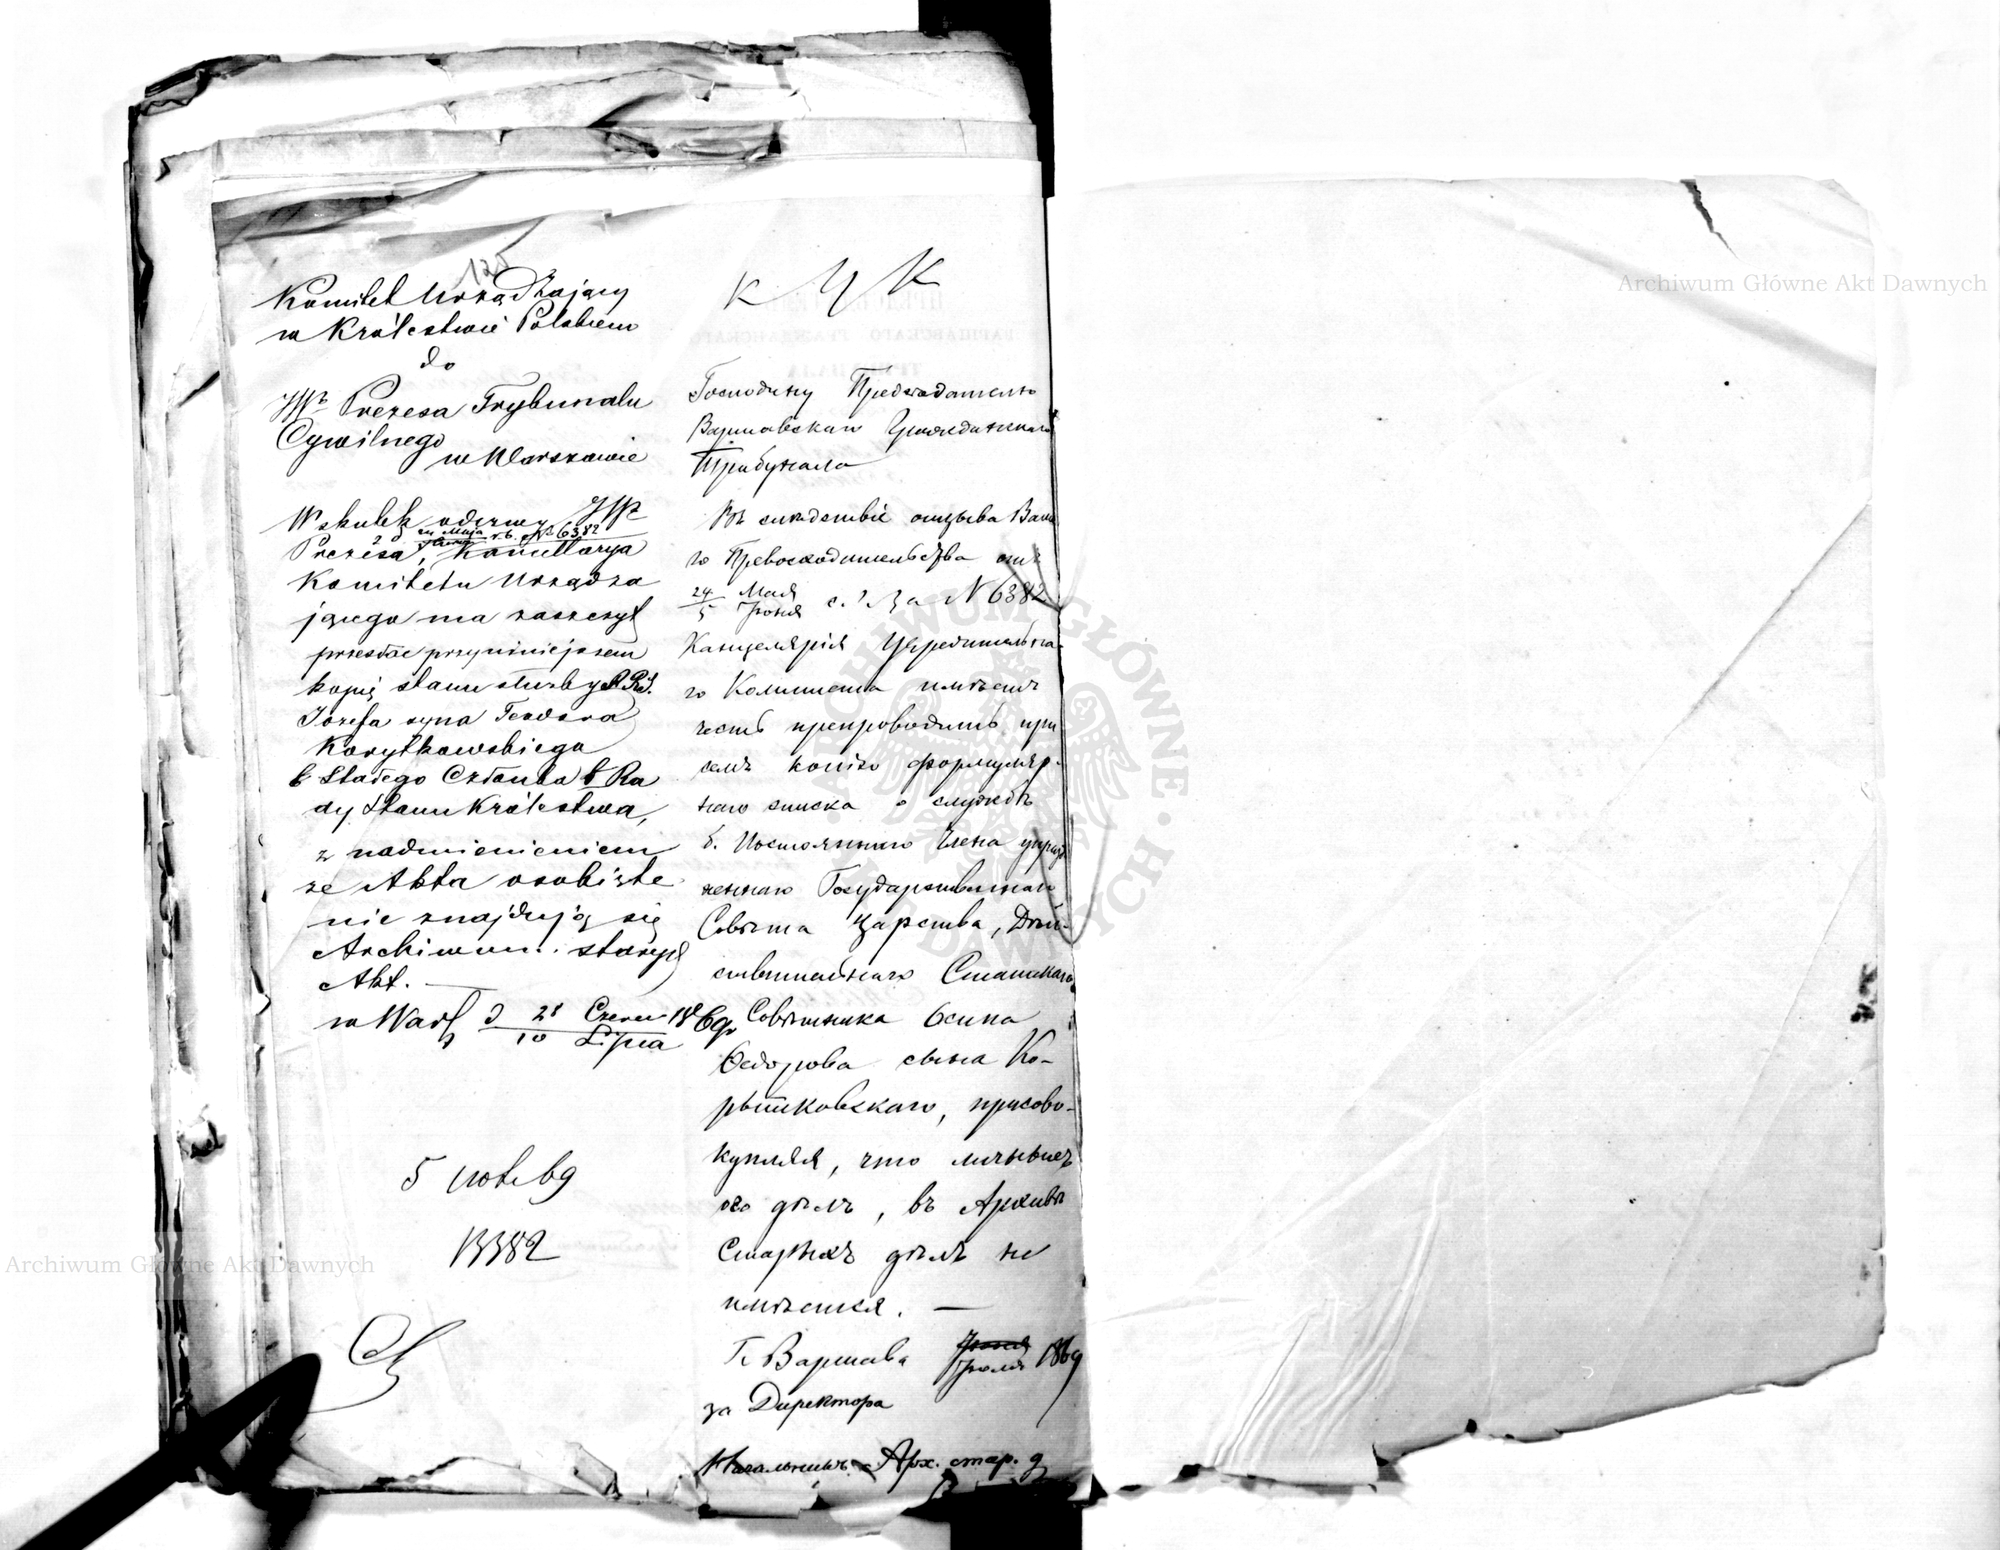 125
Komitet Urządzający
w Królestwie Polskiem
do
JW Prezesa Trybunału
Cywilnego
w Warszawie
Wskutek odezwy JW
Prezesa, z d. 24 Maja r.b. N 6382 Kancellarya
Komitetu Urządza
jącego ma zaszczyt
przesłać przy niniejszem
kopię stanu służby R.R.S.
Józefa syna Teodora
Korytkowskiego
b Stałego Członka b Ra
dy Stanu Królestwa,
z nadmienieniem
że Akta osobiste
nie znajdują się
Archiwum starych
Akt. —
w Warsz d 28 Czerw 1869
10 Lipca
5 lote 69
13382
К У К
Господину Председателю
Варшавскаго Гражданскаго
Трибунала
Въ следствіе отзыва Ваше
го Превосходительства отъ
24 Мая
5 Іюня с. г. за N 6382
Канцелярія Учредительна
го Комитета имѣетъ
честь препроводить при
семъ копію формуляр-
наго списка о службѣ
б. Постояннаго Члена упразд
неннаго Государственнаго
Совѣта Царства, Дѣй-
ствительнаго Статскаго
Совѣтника Осипа
Ѳедорова сына Ко-
рытковскаго, присово-
купляя, что личныхъ
его дѣлъ, въ Архивѣ
Старыхъ дѣлъ не
имѣется. —
Г. Варшава Іюля 1869
за Директора
Начальникъ Арх. стар. д
Archiwum Główne Akt Dawnych
Archiwum Główne Akt Dawnych
ARCHIWUM GŁÓWNE AKT DAWNYCH